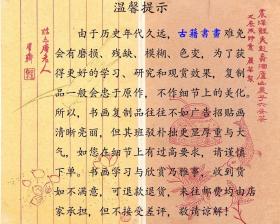 温馨提示
由于历史年代久远，古籍書畫难免
会有磨损、残缺、模糊、色变，为了获
得更好的学习、研究和现赏效果，复制
品一般会忠于原作，不作细节上的美化。
所以，书画复制品往往不如广告招贴画
清晰亮丽，但其斑驳朴拙更显厚重与大
气，如您在细节上有过高要求，请谨慎
下单。书画学习与欣赏乃雅事，收到货
如不满意，可退款退货，来往邮费均由店
家承担，但不接受差评，敬请谅解！